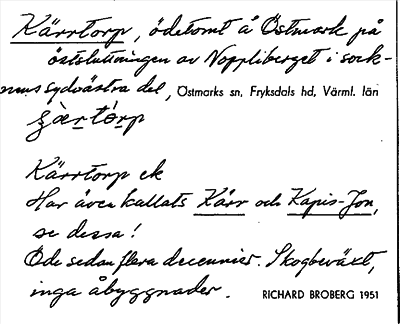 Kärrtorp, ödetomt å Östmark på
östsluttningen av Noppliberget i sock-
nens sydvästra del, Östmarks sn, Fryksdals hd, Värml. län
Kärrtorp ek
Har även kallats Kärr och Kapis-Jon,
se dessa!
Öde sedan flera decennier. Skogbeväxt,
inga åbyggnader. RICHARD BROBERG 1951